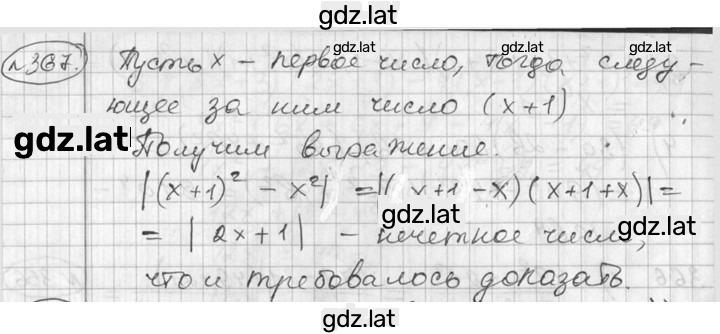 gdz.lat
№367. Пусть x – первое число, тогда следу-
ющее за ним число (x+1)
gdz.lat
gdz.lat
gdz.lat
Получим выражение.
|(x+1)² – x²| = |(x+1–x)(x+1+x)| =
gdz.lat
= |2x+1| – нечетное число,
что и требовалось доказать.
gdz.lat